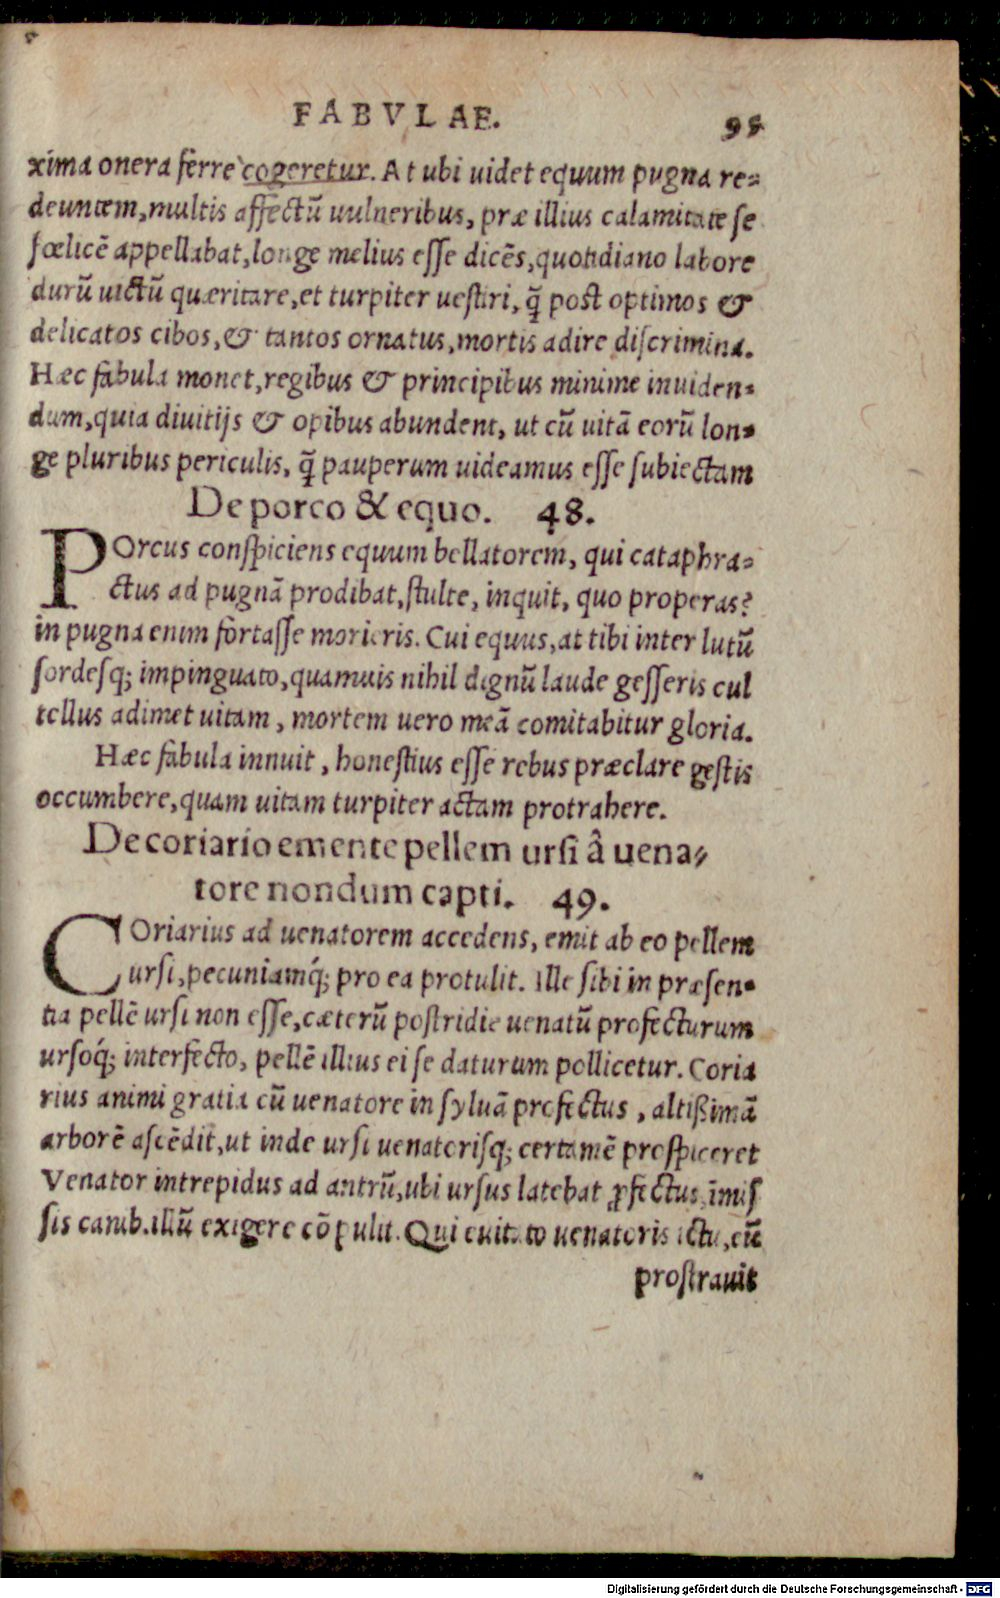 FABVLAE. 95
xima onera ferre cogeretur. At ubi uidet equum pugna re=
deuntem, multis affectū uulneribus, præ illius calamitate se
fœlicē appellabat, longe melius esse dicēs, quotidiano labore
durū uictū quæritare, et turpiter uestiri, q̄ post optimos &
delicatos cibos, & tantos ornatus, mortis adire discrimina.
Hæc fabula monet, regibus & principibus minime inuiden=
dum, quia diuitijs & opibus abundent, ut cū uitā eorū lon=
ge pluribus periculis, q̄ pauperum uideamus esse subiectam
De porco & equo. 48.
POrcus conspiciens equum bellatorem, qui cataphra=
ctus ad pugnā prodibat, stulte, inquit, quo properas?
in pugna enim fortasse morieris. Cui equus, at tibi inter lutū
sordesq; impinguato, quamuis nihil dignū laude gesseris cul
tellus adimet uitam, mortem uero meā comitabitur gloria.
Hæc fabula innuit, honestius esse rebus præclare gestis
occumbere, quam uitam turpiter actam protrahere.
De coriario emente pellem ursi â uena=
tore nondum capti. 49.
COriarius ad uenatorem accedens, emit ab eo pellem
ursi, pecuniamq́; pro ea protulit. Ille sibi in præsen=
tia pellē ursi non esse, cæterū postridie uenatū profecturum
ursoq́; interfecto, pellē illius ei se daturum pollicetur. Coria
rius animi gratia cū uenatore in syluā profectus, altißimā
arborē ascēdit, ut inde ursi uenatorisq; certamē prospiceret
Venator intrepidus ad antrū, ubi ursus latebat ꝓfectus, īmis
sis canib. illū exigere cōpulit. Qui euitato uenatoris ictu, eū
prostrauit
Digitalisierung gefördert durch die Deutsche Forschungsgemeinschaft - DFG